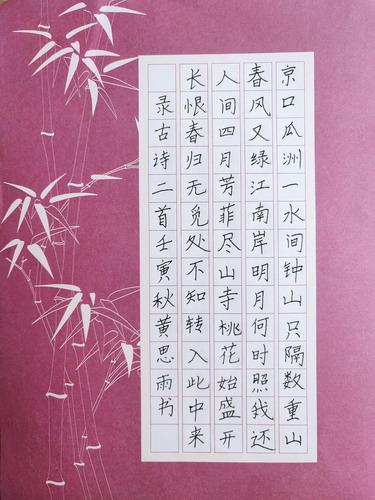 京口瓜洲一水间钟山只隔数重山
春风又绿江南岸明月何时照我还
人间四月芳菲尽山寺桃花始盛开
长恨春归无觅处不知转入此中来
录古诗二首壬寅秋黄思雨书